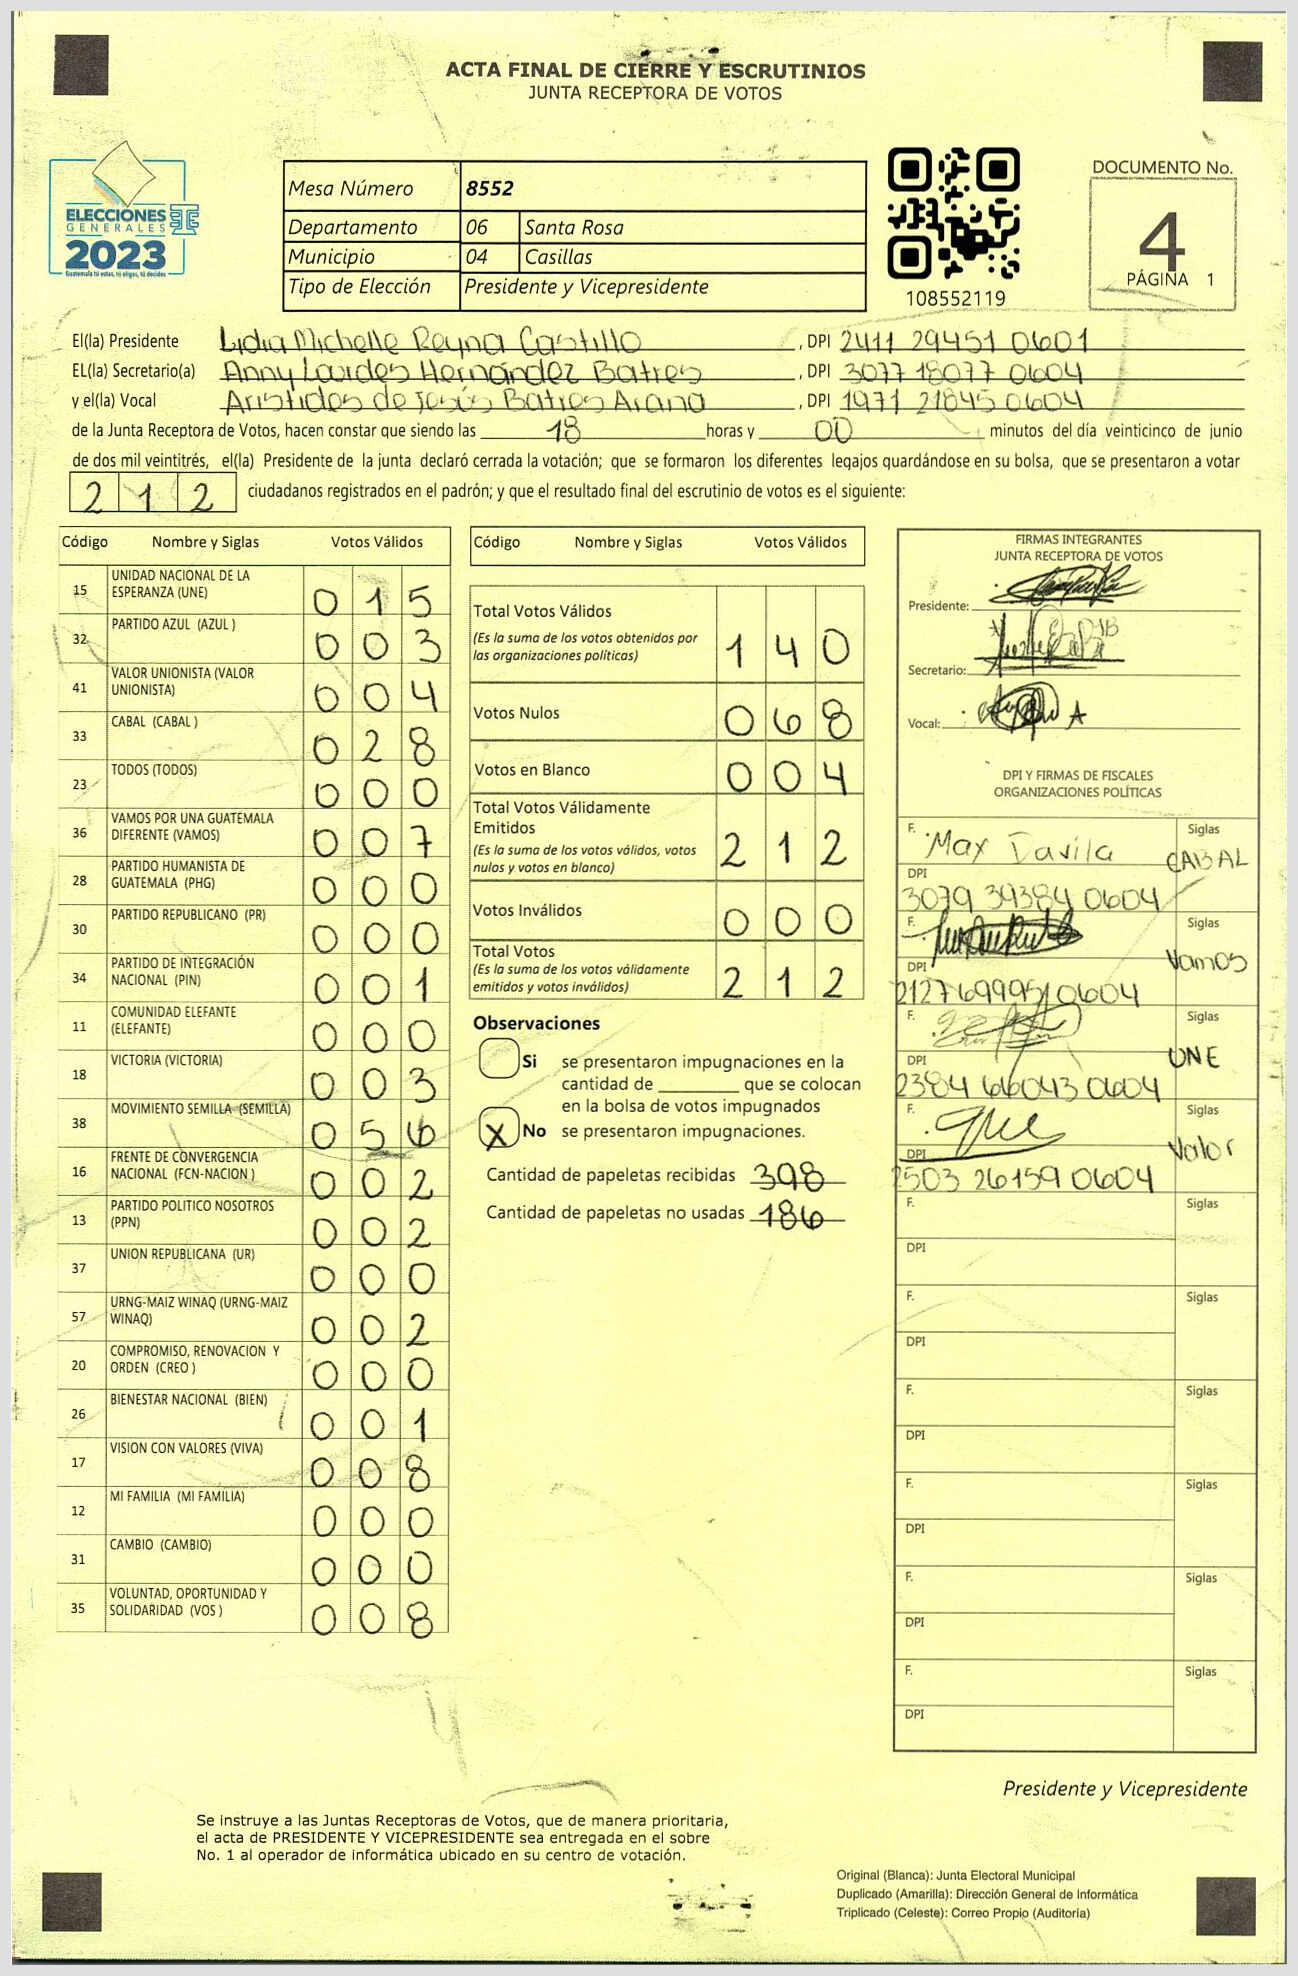 ACTA FINAL DE CIERRE Y ESCRUTINIOS
JUNTA RECEPTORA DE VOTOS
ELECCIONES
GENERALES
2023
Guatemala tú estas, tú eliges, tú decides
Mesa Número 8552
Departamento 06 Santa Rosa
Municipio 04 Casillas
Tipo de Elección Presidente y Vicepresidente
108552119
DOCUMENTO No.
4
PÁGINA 1
El(la) Presidente Lidia Michelle Reyna Castillo, DPI 2411 29451 0601
EL(la) Secretario(a) Anny Lourdes Hernández Batres, DPI 3077 18077 0604
y el(la) Vocal Aristides de Jesús Batres Arana, DPI 1971 21845 0604
de la Junta Receptora de Votos, hacen constar que siendo las 18 horas y 00 minutos del día veinticinco de junio
de dos mil veintitrés, el(la) Presidente de la junta declaró cerrada la votación; que se formaron los diferentes legajos guardándose en su bolsa, que se presentaron a votar
212 ciudadanos registrados en el padrón; y que el resultado final del escrutinio de votos es el siguiente:
Código Nombre y Siglas Votos Válidos
15 UNIDAD NACIONAL DE LA
ESPERANZA (UNE) 015
32 PARTIDO AZUL (AZUL ) 003
41 VALOR UNIONISTA (VALOR
UNIONISTA) 004
33 CABAL (CABAL ) 028
23 TODOS (TODOS) 000
36 VAMOS POR UNA GUATEMALA
DIFERENTE (VAMOS) 007
28 PARTIDO HUMANISTA DE
GUATEMALA (PHG) 000
30 PARTIDO REPUBLICANO (PR) 000
34 PARTIDO DE INTEGRACIÓN
NACIONAL (PIN) 001
11 COMUNIDAD ELEFANTE
(ELEFANTE) 000
18 VICTORIA (VICTORIA) 003
38 MOVIMIENTO SEMILLA (SEMILLA) 056
16 FRENTE DE CONVERGENCIA
NACIONAL (FCN-NACION ) 002
13 PARTIDO POLITICO NOSOTROS
(PPN) 002
37 UNION REPUBLICANA (UR) 000
57 URNG-MAIZ WINAQ (URNG-MAIZ
WINAQ) 002
20 COMPROMISO, RENOVACION Y
ORDEN (CREO ) 000
26 BIENESTAR NACIONAL (BIEN) 001
17 VISION CON VALORES (VIVA) 008
12 MI FAMILIA (MI FAMILIA) 000
31 CAMBIO (CAMBIO) 000
35 VOLUNTAD, OPORTUNIDAD Y
SOLIDARIDAD (VOS ) 008
Código Nombre y Siglas Votos Válidos
Total Votos Válidos
(Es la suma de los votos obtenidos por
las organizaciones políticas) 140
Votos Nulos 068
Votos en Blanco 004
Total Votos Válidamente
Emitidos
(Es la suma de los votos válidos, votos
nulos y votos en blanco) 212
Votos Inválidos 000
Total Votos
(Es la suma de los votos válidamente
emitidos y votos inválidos) 212
Observaciones
Si se presentaron impugnaciones en la
cantidad de ________ que se colocan
en la bolsa de votos impugnados
X No se presentaron impugnaciones.
Cantidad de papeletas recibidas 398
Cantidad de papeletas no usadas 186
FIRMAS INTEGRANTES
JUNTA RECEPTORA DE VOTOS
Presidente:
Secretario:
Vocal:
DPI Y FIRMAS DE FISCALES
ORGANIZACIONES POLÍTICAS
F. Max Davila Siglas CABAL
DPI
3079 39384 0604
F. Siglas Vamos
DPI
2127 69995 0604
F. Siglas UNE
DPI
2384 66043 0604
F. Siglas Valor
DPI
2503 26159 0604
F. Siglas
DPI
F. Siglas
DPI
F. Siglas
DPI
F. Siglas
DPI
F. Siglas
DPI
F. Siglas
DPI
Presidente y Vicepresidente
Se instruye a las Juntas Receptoras de Votos, que de manera prioritaria,
el acta de PRESIDENTE Y VICEPRESIDENTE sea entregada en el sobre
No. 1 al operador de informática ubicado en su centro de votación.
Original (Blanca): Junta Electoral Municipal
Duplicado (Amarilla): Dirección General de Informática
Triplicado (Celeste): Correo Propio (Auditoría)